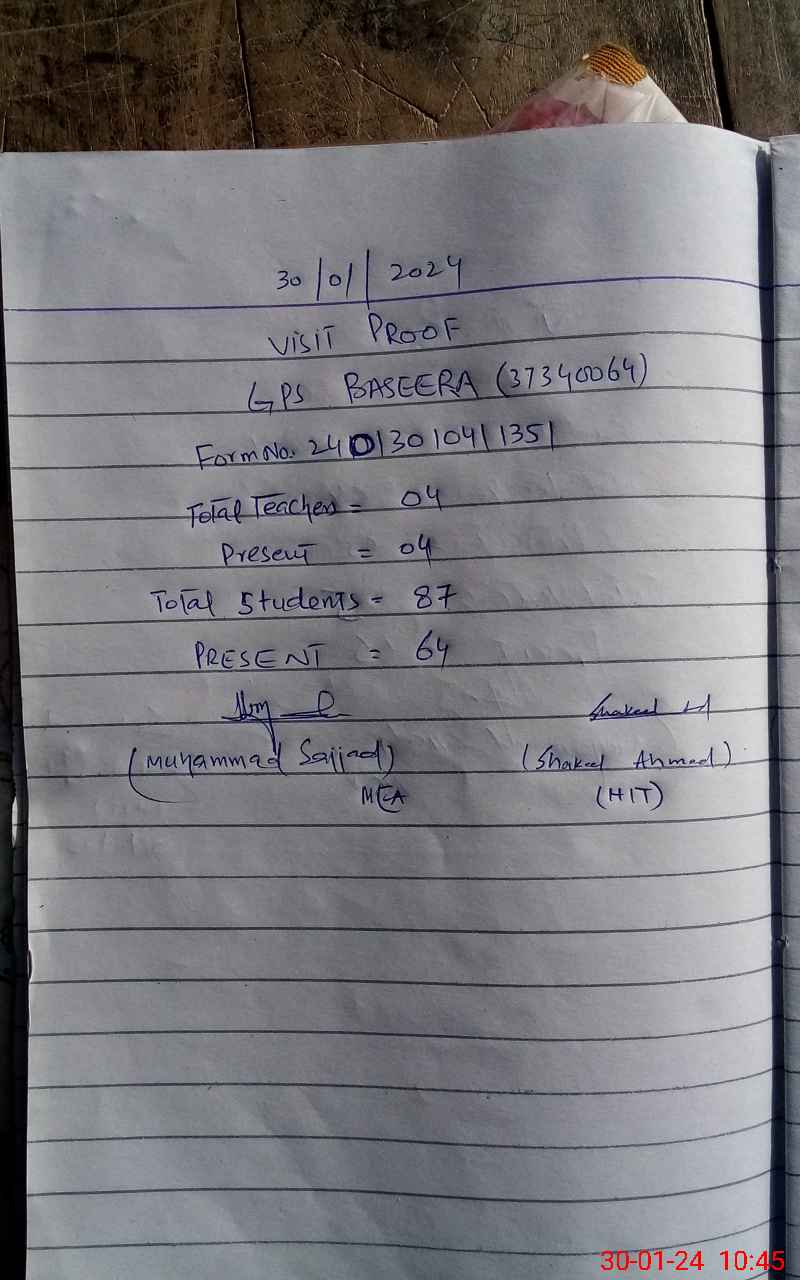 30/01/2024
VISIT PROOF
GPS BASEERA (37340064)
Form No. 24013010411351
Total Teachers = 04
Present = 04
Total Students = 87
PRESENT = 64
Shakeel
(Muhammad Sajjad) (Shakeel Ahmad)
MEA (HIT)
30-01-24 10:45